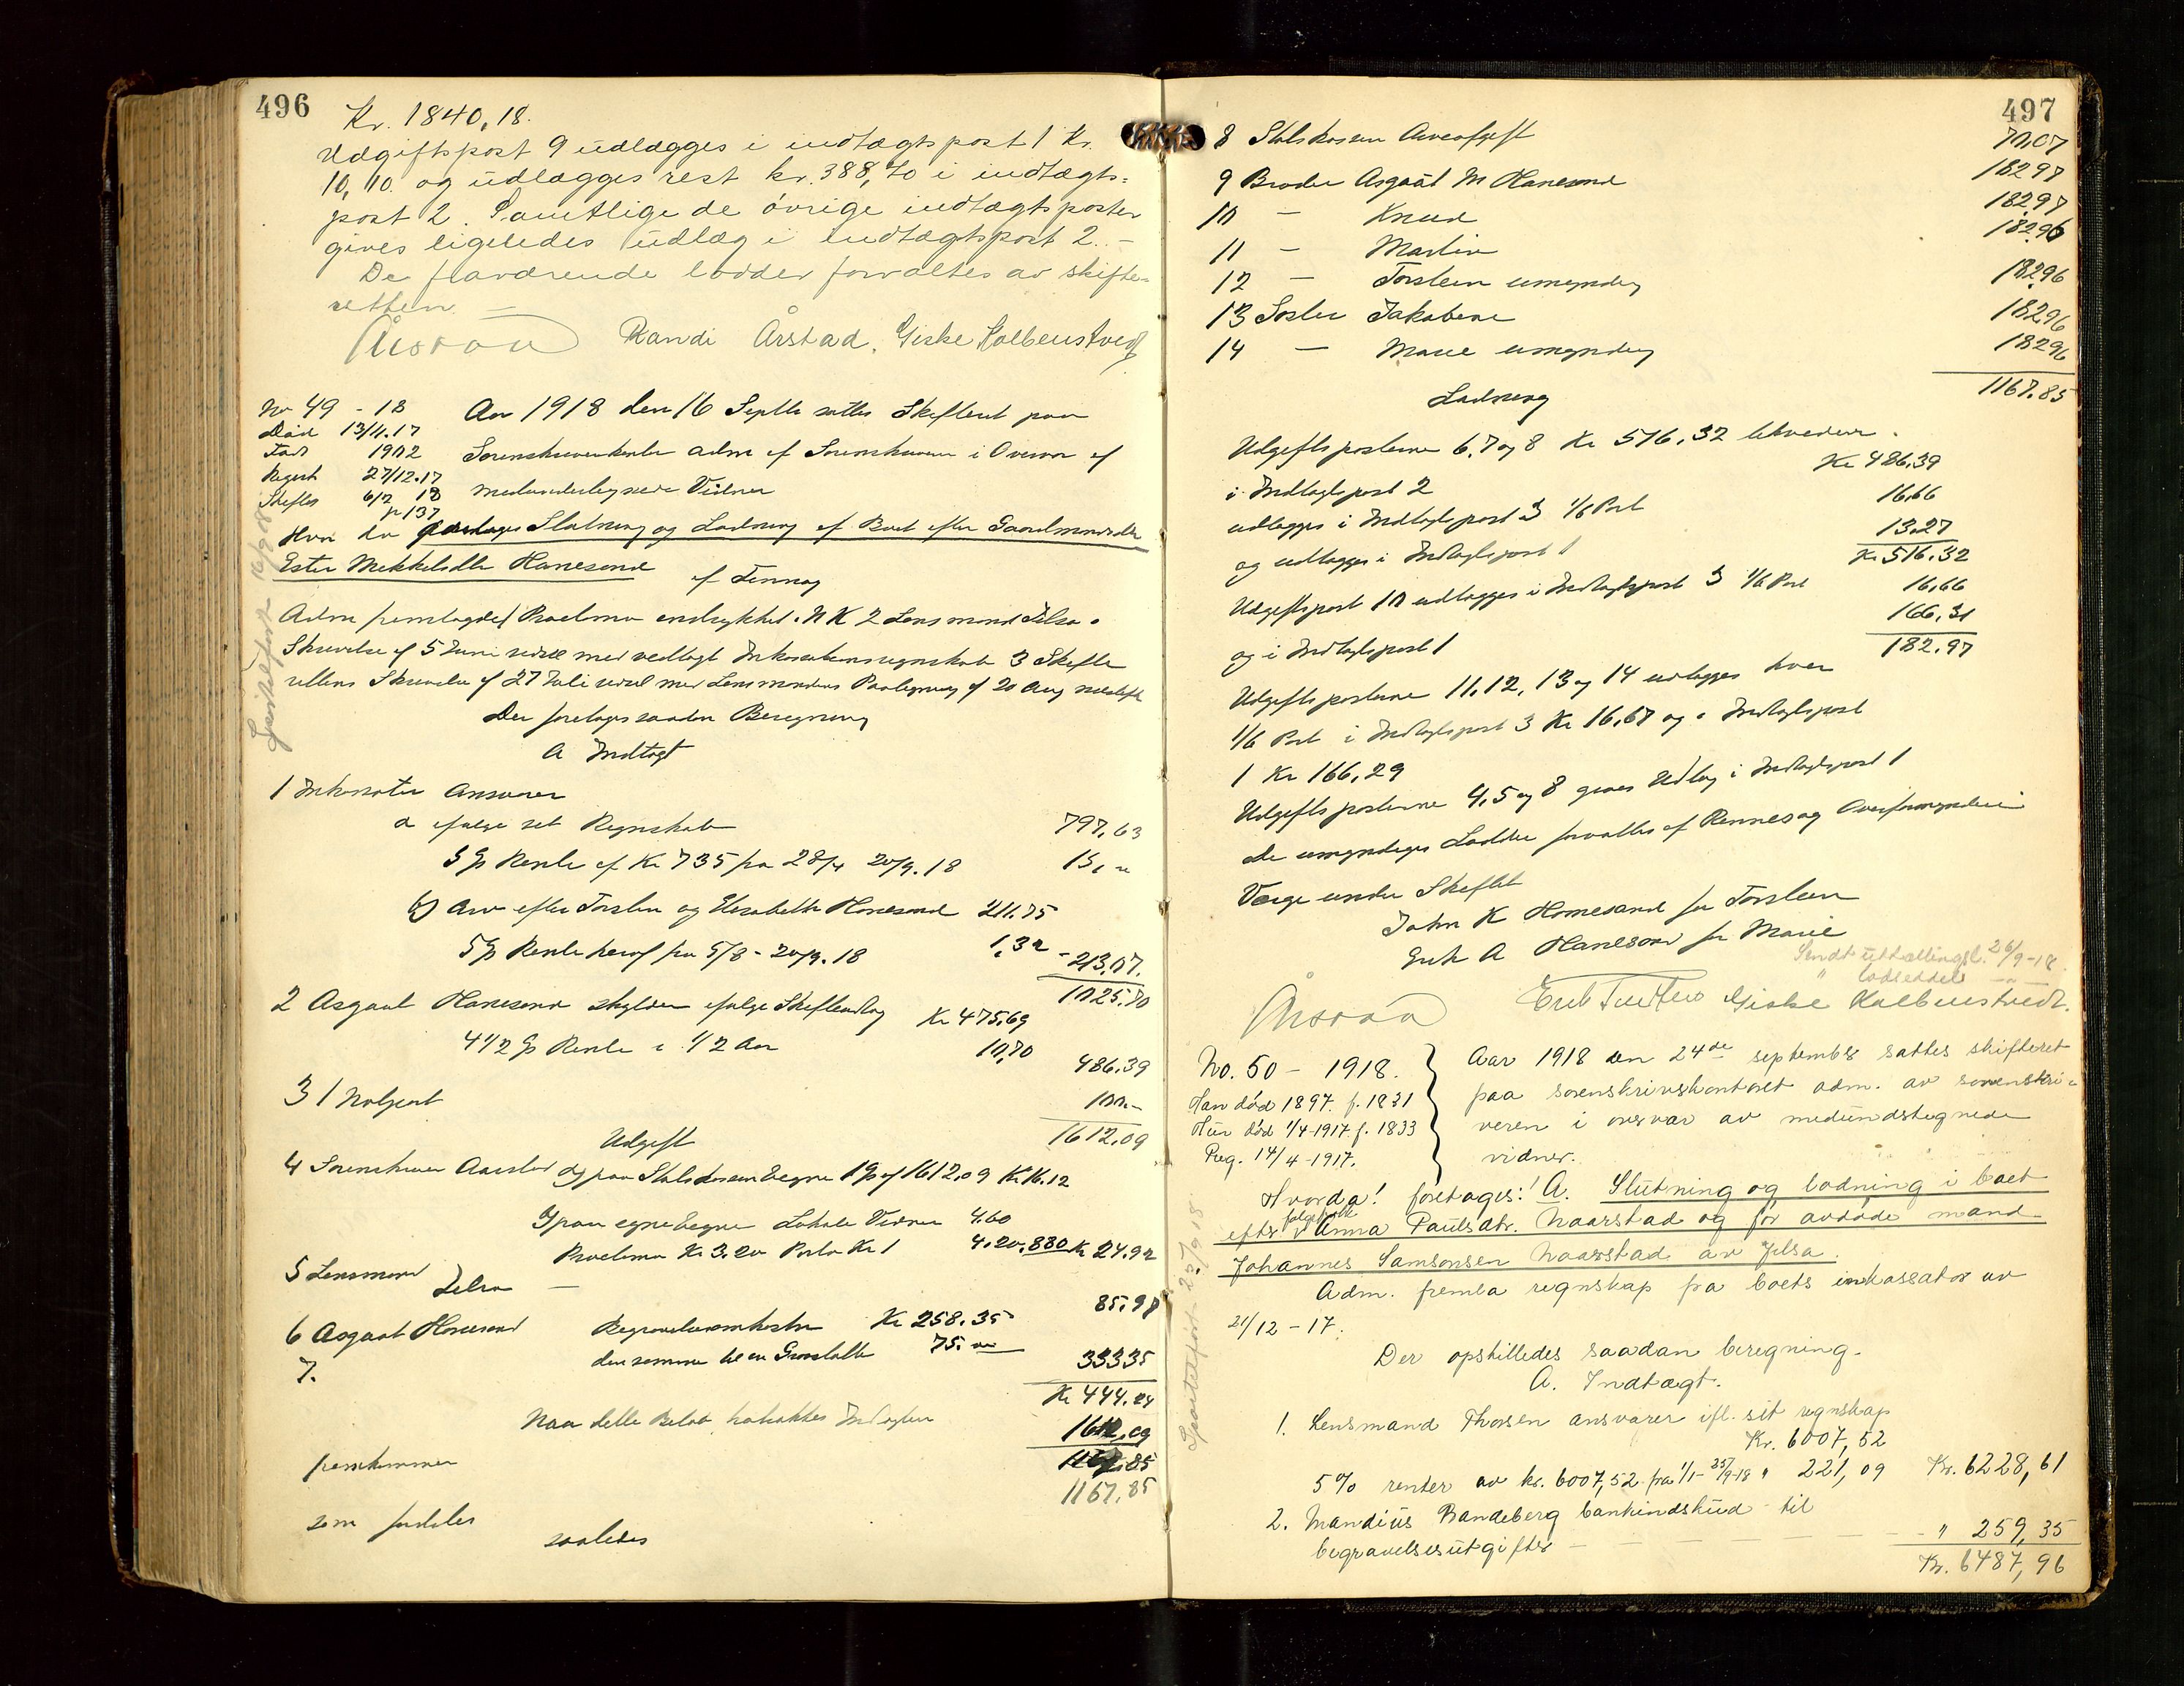 496
Kr. 1840,18.
Udgiftspost 9 udlægges i indtægtspost 1 Kr.
10,10 og udlægges rest kr. 388,70 i indtægts-
post 2. Samtlige de øvrige indtægtsposter
gives ligeledes udlæg i indtægtspost 2. -
De fraværende lodder forvaltes av skifte-
retten. -
Randi Årstad. Giske Kolbenstvedt
No 49 - 18
Død 13/11.17
Født 1902
Regist 27/12.17
Skiftes 6/2 18
p 137
Aar 1918 den 16 Septbr sattes Skifteret paa
Sorenskriverkontor adm af Sorenskriveren i Overvær af
medundertegnede Vidner
Hvor da foretages Slutning og Lodning af Boet efter Gaardmandsdtr
Ester Mikkelsdtr Hanesand af Finnøy
Sportelført 16/9 18
Adm fremlagde Proclama indrykket i NK 2 Lensmand Jelsa
Skrivelse af 5 Juni med vedlagt Inkassationsregnskab 3 Skifte
rettens Skrivelse af 27 Juli med Lensmandens Paategning af 20 Aug
Der foretages saadan Beregning
A Indtægt
1 Inkassator Ansvarer
a ifølge set Regnskab 797,63
5 % Rente af Kr 735 fra 28/4 20/9.18 15,
b) Arv efter Torsten og Elisabeth Hanesand 211.75
5 % Rente heraf fra 5/8 - 20/9.18 1,32 - 213.07.
1025.70
2 Asgaut Hanesand skylder ifølge Skifteudlæg Kr 475,69
4 1/2 % Rente i 1/2 Aar 10,70
486.39
3 1 Notpart 100.-
1612,09
Udgift
4 Sorenskriver Aarstad a) paa Statskassens Vegne 1 % af 1612,09 Kr 16.12
b) paa egne Vegne Lokale Vidner 4.60
Proclama Kr 3.20 Porto Kr 1 4.20. 8.80 Kr 24.92
5 Lensmand Jelsa - 85.98
6 Asgaut Hanesand Begravelsesomkostn Kr 258.35
7. den samme til en Gravstøtte 75. 333.35
Kr 444.24
Naar dette Beløb fratrækkes Indtægten 1612,09
fremkommer 1167.85
1167,85
som fordeles
saaledes
497
8 Statskassen Arveafgift 70,07
9 Broder Asgaut M Hanesand 182.97
10 - Knud 182.97
11 - Martin 182.96
12 - Torstein umyndig 182.96
13 Søster Jakobine 182.96
14 - Marie umyndig 182.96
1167.85
Lodning
Udgiftsposterne 6, 7 og 8 Kr 516.32
i Indtægtspost 2 Kr 486,39
udlægges i Indtægtspost 3 1/6 Part 16,66
og udlægges i Indtægtspost 1 13,27
Kr 516.32
Udgiftspost 10 udlægges i Indtægtspost 3 1/6 Part 16,66
og i Indtægtspost 1 166,31
182.97
Udgiftsposterne 11, 12, 13 og 14 udlægges hver
1/6 Part i Indtægtspost 3 Kr 16,67 og i Indtægtspost
1 Kr 166,29
Udgiftsposterne 4, 5 og 8 gives Udlæg i Indtægtspost 1
De umyndiges Lodder forvaltes af Rennesøy Overformynderi
Værge under Skiftet
John K Hanesand for Torstein
Erik A Hanesand for Marie
Sendt uttællingsl. 26/9-18
" lodseddel
Giske Kolbenstvedt.
No. 50 - 1918.
Han død 1897. f. 1831
Hun død 1/4-1917. f. 1833
Reg. 14/4-1917.
Aar 1918 den 24de september sattes skifteret
paa sorenskriverkontoret adm. av sorenskri-
veren i overvær av medundertegnede
vidner.
Hvorda! foretages: A. Slutning og lodning i boet
efter Anna Paulsdtr. Naarstad og før avdøde mand
Johannes Samsonsen Naarstad av Jelsa.
Sportelført 25/9 18
Adm. fremla regnskap fra boets inkassator av
21/12 - 17.
Der opstilledes saadan beregning.
A. Indtægt.
1. Lensmand Thorsen ansvarer ifl. sit regnskap
Kr. 6007,52
5 % renter av kr. 6007,52 fra 1/1-25/9-18 " 221,09 Kr. 6228,61
2. Mandius Randeberg bankindskud til
begravelsesutgifter - - - - - " 259,35
Kr. 6487,96